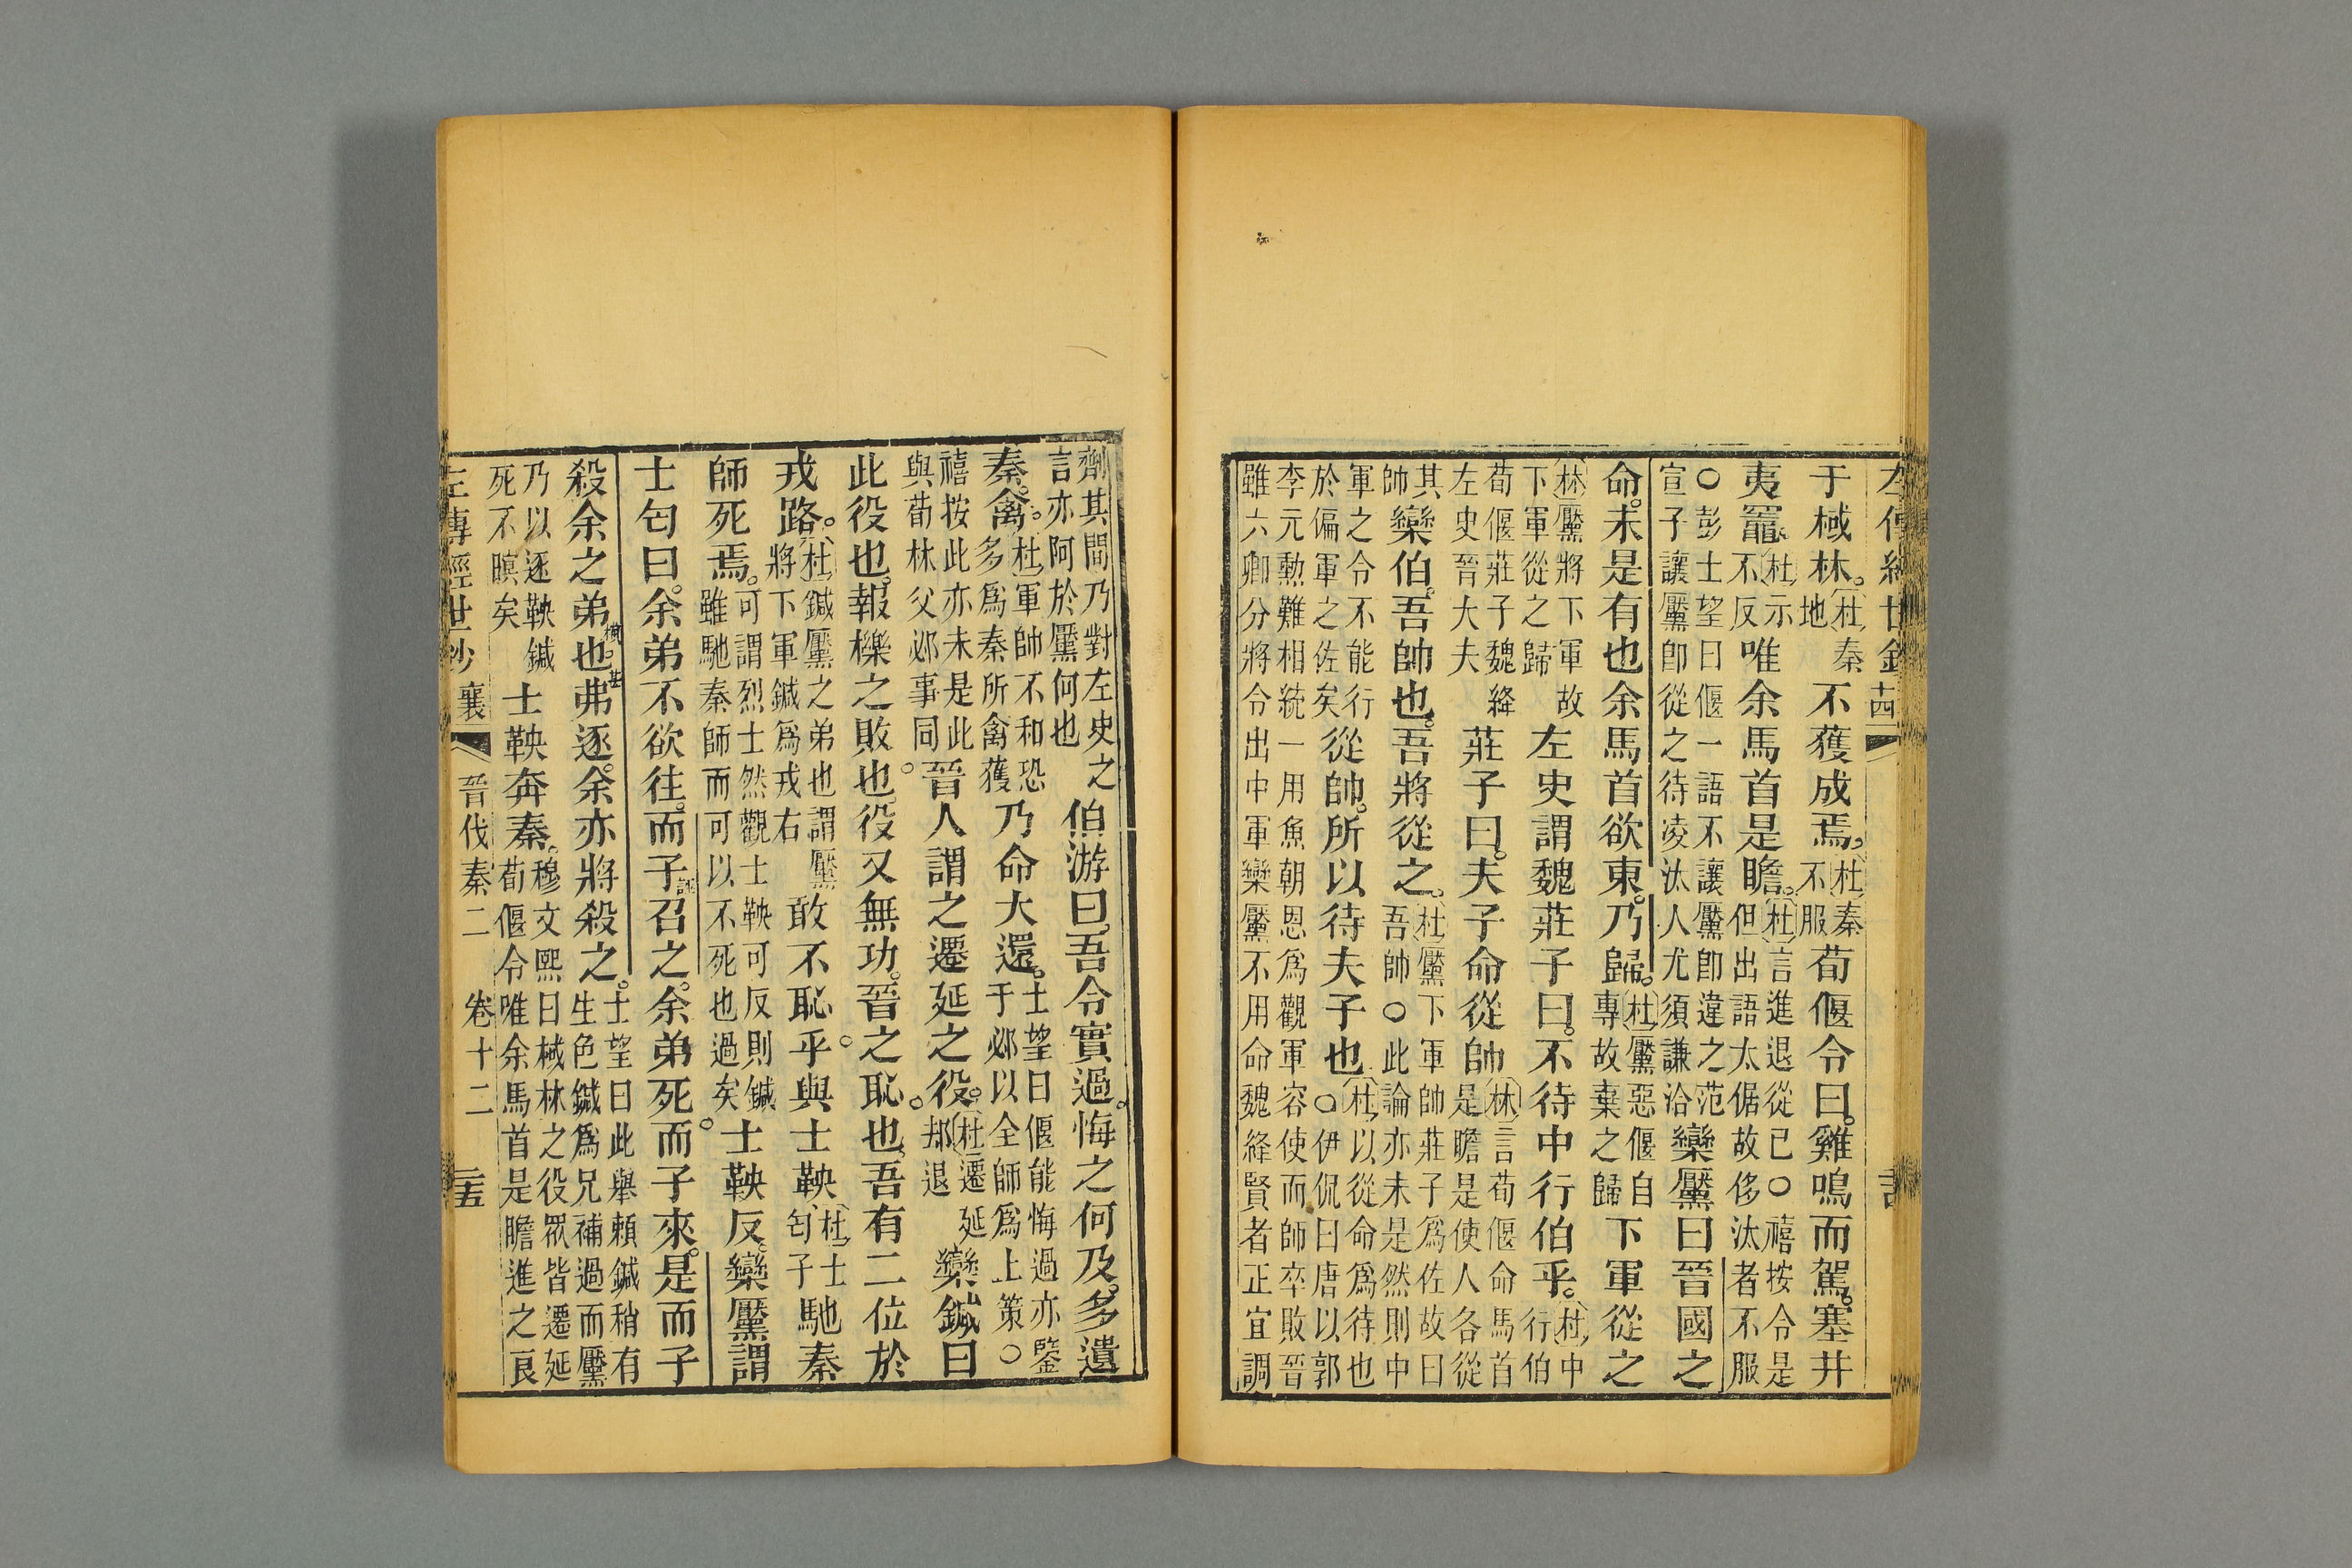 于棫林。杜秦地不獲成焉。杜秦不服荀偃令曰。雞鳴而駕。塞井
夷竈。杜示不反唯余馬首是瞻。杜言進退從已○禧按令是但出語太倨故侈汰者不服
○彭士望曰偃一語不讓黶卽違之范宣子讓黶卽從之待凌汰人尤須謙洽欒黶曰晉國之
命。未是有也余馬首欲東。乃歸。杜黶惡偃自專故棄之歸下軍從之
林黶將下軍故下軍從之歸左史謂魏莊子曰。不待中行伯乎。杜中行伯
荀偃莊子魏絳左史晉大夫莊子曰。夫子命從帥林言荀偃命馬首是瞻是使人各從
其帥欒伯。吾帥也。吾將從之。杜黶下軍帥莊子爲佐故曰吾帥○此論亦未是然則中
軍之令不能行於偏軍之佐矣從帥。所以待夫子也。杜以從命爲待也○伊侃曰唐以郭
李元勳難相統一用魚朝恩爲觀軍容使而師卒敗晉雖六卿分將令出中軍欒黶不用命魏絳賢者正宜調
劑其間乃對左史之言亦阿於黶何也伯游曰。吾令實過。悔之何及。多遺
秦禽。杜軍帥不和恐多爲秦所禽獲乃命大還。士望曰偃能悔過亦鑒于邲以全師爲上策○
禧按此亦未是此與荀林父邲事同晉人謂之遷延之役。杜遷延却退欒鍼曰
此役也。報櫟之敗也。役又無功。晉之恥也。吾有二位於
戎路。杜鍼黶之弟也謂黶將下軍鍼爲戎右敢不恥乎。與士鞅杜士匄子馳秦
師死焉。可謂烈士然觀士鞅可反則鍼雖馳秦師而可以不死也過矣士鞅反。欒黶謂
士匄曰。余弟不欲往。而子召之。余弟死。而子來。是而子
殺余之弟也。弗逐。余亦將殺之。士望曰此舉賴鍼稍有生色鍼爲兄補過而黶
乃以逐鞅鍼死不瞑矣士鞅奔秦。穆文熙曰棫林之役眾皆遷延荀偃令唯余馬首是瞻進之良
左傳經世鈔 襄 晉伐秦二 卷十二 三五